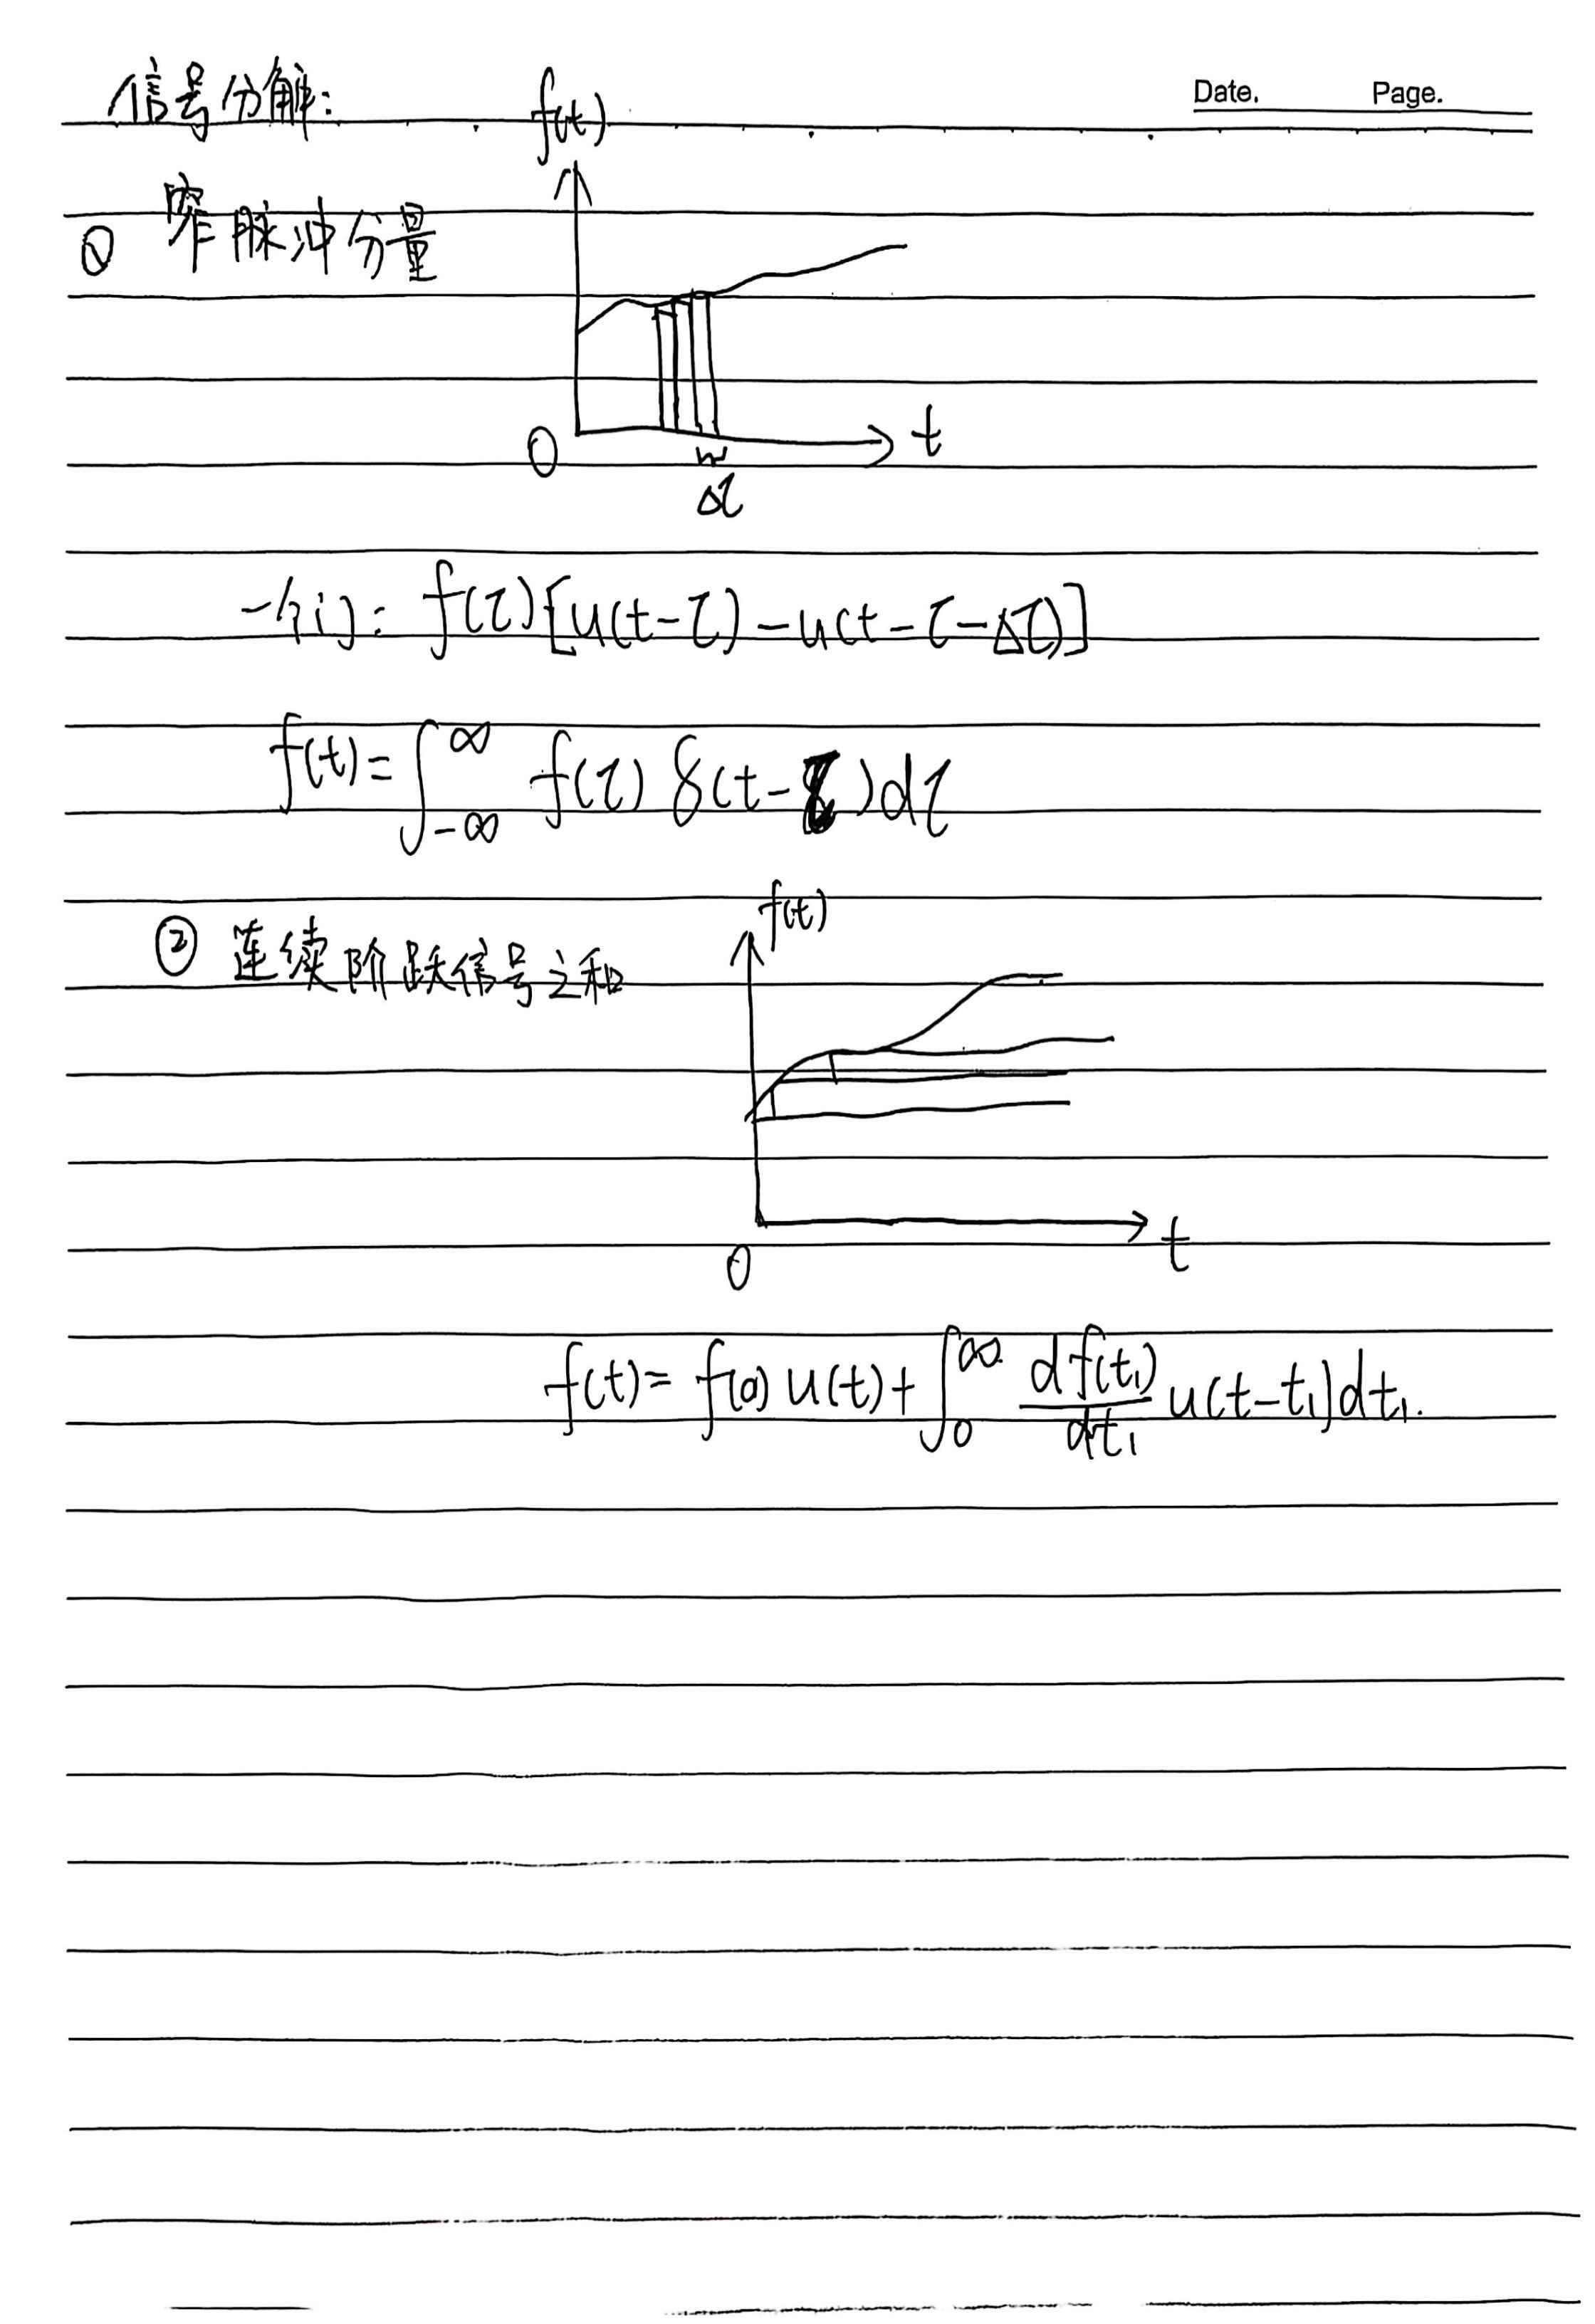 信号分解:
Date. Page.
f(t)
① 窄脉冲分量
t
0
Δτ
一个: f(τ)[u(t-τ)-u(t-τ-Δτ)]
f(t)=∫_{-∞}^{∞} f(τ) δ(t-τ)dτ
f(t)
② 连续阶跃信号之和
t
0
f(t)= f(0) u(t)+∫_0^∞ \frac{df(t₁)}{dt₁} u(t-t₁)dt₁.